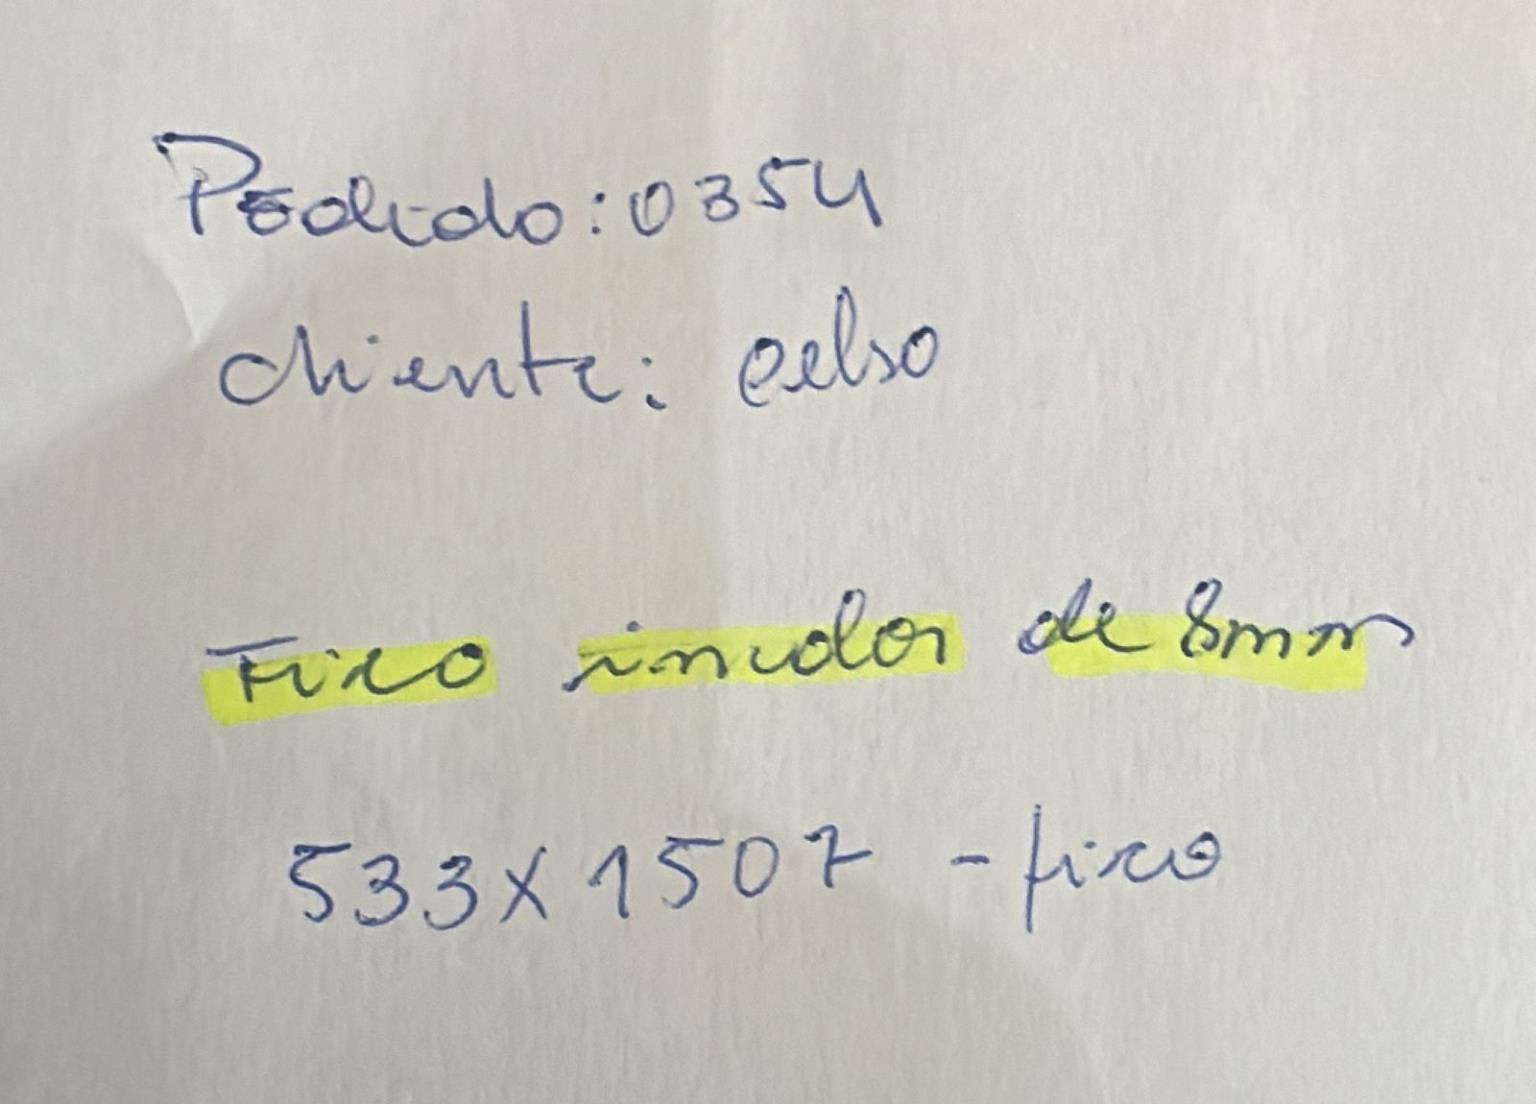 Pedido: 0354
cliente: celso
Fixo incolor de 8mm
533x1507 - fixo